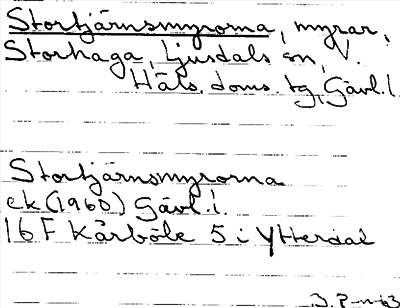 Stortjärnsmyrorna, myrar,
Storhaga, Ljusdals sn, V.
Häls. doms. tg, Gävl. l.
Stortjärnsmyrorna
ek (1960) Gävl. l.
16 F Kårböle 5 i Ytterdal